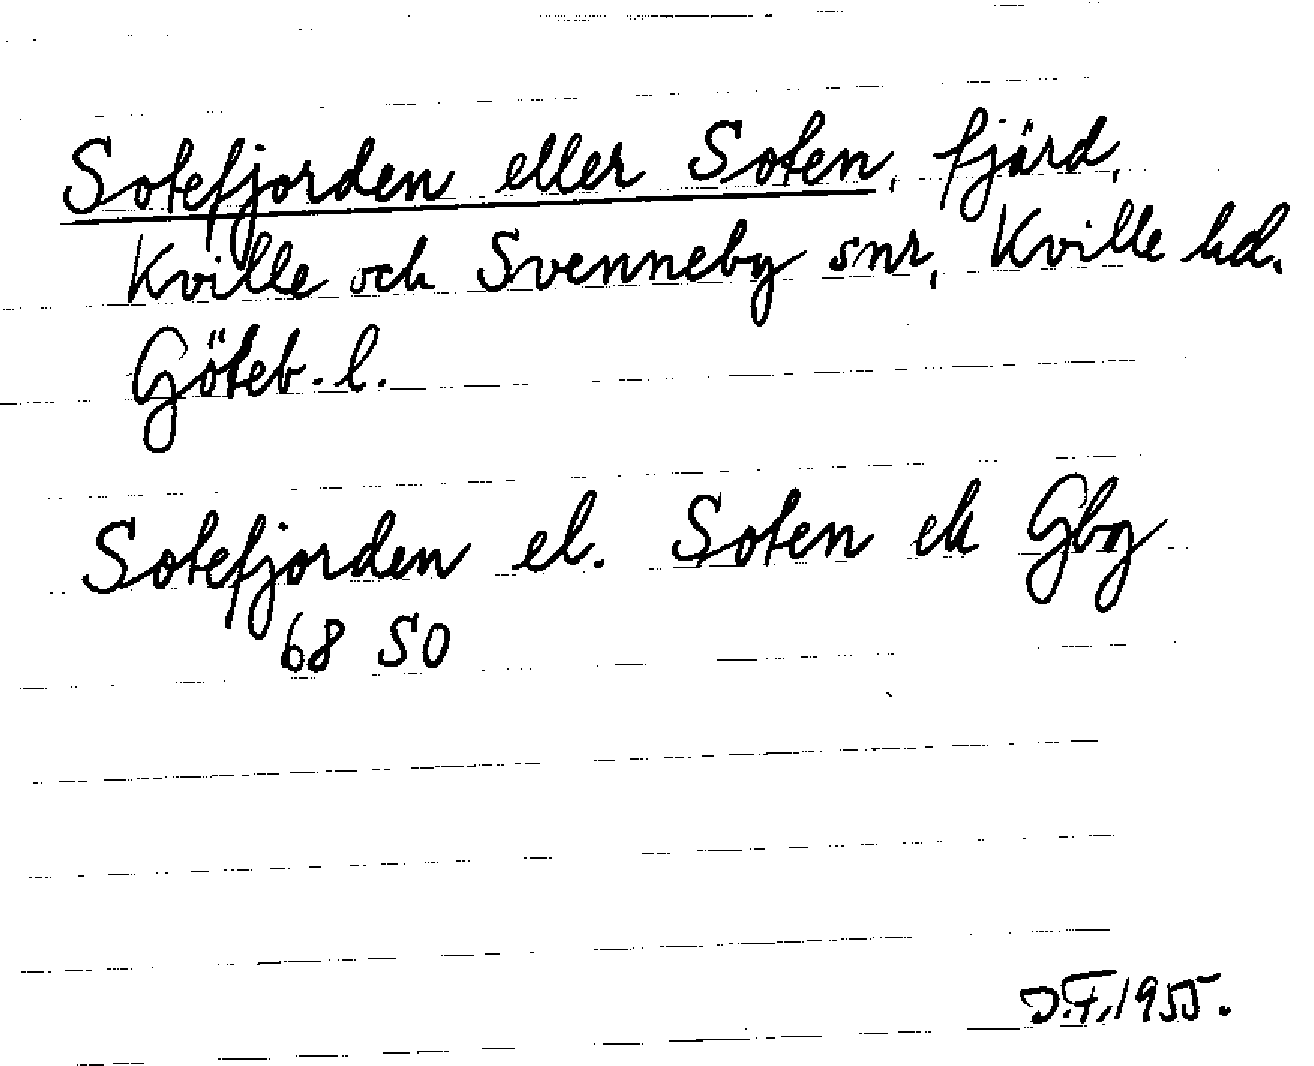 Sotefjorden eller Soten, fjärd,
Kville och Svenneby snr, Kville hd.
Göteb. l.
Sotefjorden el. Soten ek Gbg
68 SO
D.F. 1955.